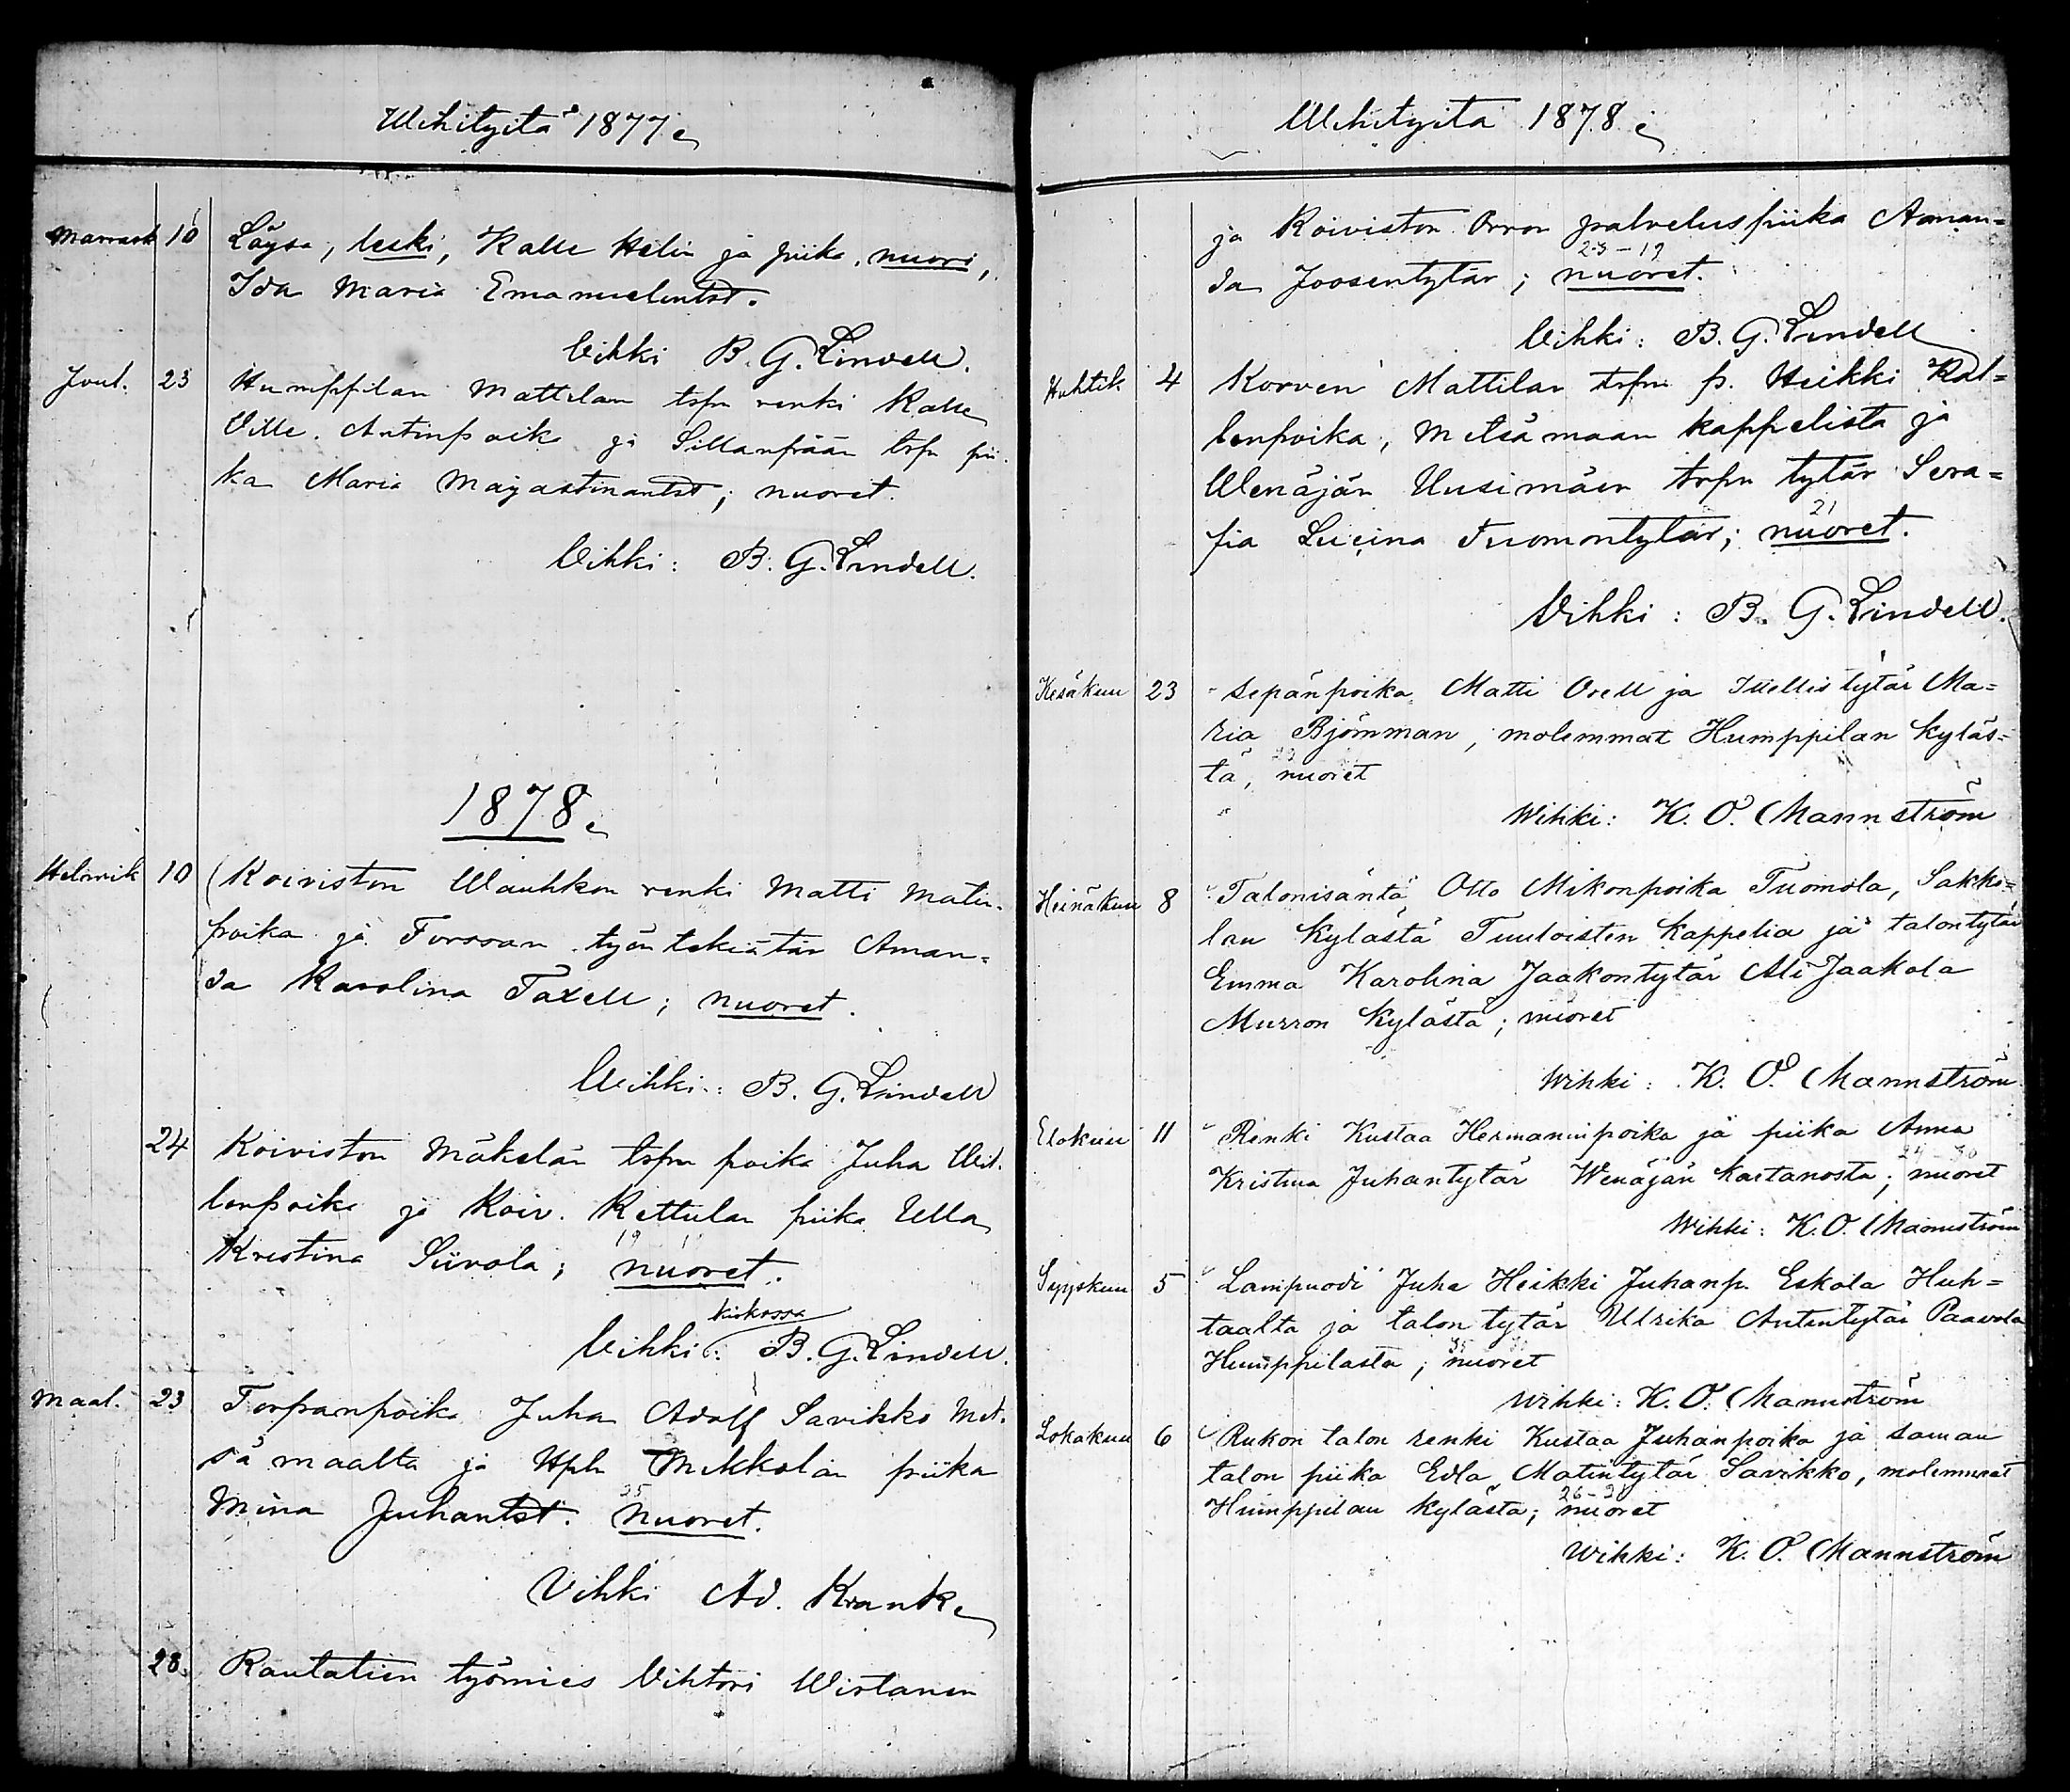 Wihityitä 1877.
Marrask 10 Löysä, leski, Kalle Helin ja piika, nuori,
Ida Maria Emanuelintr.
Vihki B. G. Lindell.
Joul. 23 Humppilan Mattilan trpn renki Kalle
Ville Antinpoika ja Sillanpään trpn pii-
ka Maria; nuoret.
Vihki: B. G. Lindell.
1878.
Helmik 10 Koiviston Wauhkon renki Matti Matin-
poika ja Forssan työntekiätär Aman-
da Karolina Taxell; nuoret.
Wihki: B. G. Lindell
24 Koiviston Mäkelän trpn poika Juha Wil-
lenpoika ja Koiv. Kettulan piika Ulla
Kristina Siivola; nuoret.
19
kirkossa
Vihki: B. G. Lindell.
Maal. 23 Torpanpoika Juha Adolf Savikko Met-
sämaalta ja Hpln Mikkolan piika
25
Mina Juhantr. nuoret.
Vihki Ad. Krank
28. Rautatien työmies Vihtori Wirtanen
Wihityitä 1878.
ja Koiviston Orron palveluspiika Aman-
23-19
da Joosentytär; nuoret.
Vihki: B. G. Lindell
Huhtik. 4 Korven Mattilan trpn p. Heikki Kal-
lenpoika, Metsämaan kappelista ja
Wenäjän Uusimäen trpn tytär Sera-
21
fia Lucina Tuomontytär; nuoret.
Vihki: B. G. Lindell.
Kesäkuu 23 Sepänpoika Matti Orell ja Itellistytär Ma-
ria Björnman, molemmat Humppilan kyläs-
tä, nuoret
Wihki: K. O. Mannström
Heinäkuu 8 Talonisäntä Otto Mikonpoika Tuomola, Sakko-
lan kylästä Tuuloisten kappelia ja talontytär
Emma Karolina Jaakontytär Ali Jaakola
Murron kylästä; nuoret
Wihki: K. O. Mannström
Elokuu 11 Renki Kustaa Hermanninpoika ja piika Anna
Kristina Juhantytär Wenäjän kartanosta; nuoret
Wihki: K. O. Mannström
Syyskuu 5 Lampuodi Juha Heikki Juhanp. Eskola Huh-
taalta ja talon tytär Ulrika Antintytär Paavola
Humppilasta; nuoret
Wihki: K. O. Mannström
Lokakuu 6 Rukon talon renki Kustaa Juhanpoika ja saman
talon piika Edla Matintytär Savikko, molemmat
Humppilan kylästä; nuoret
Wihki: K. O. Mannström